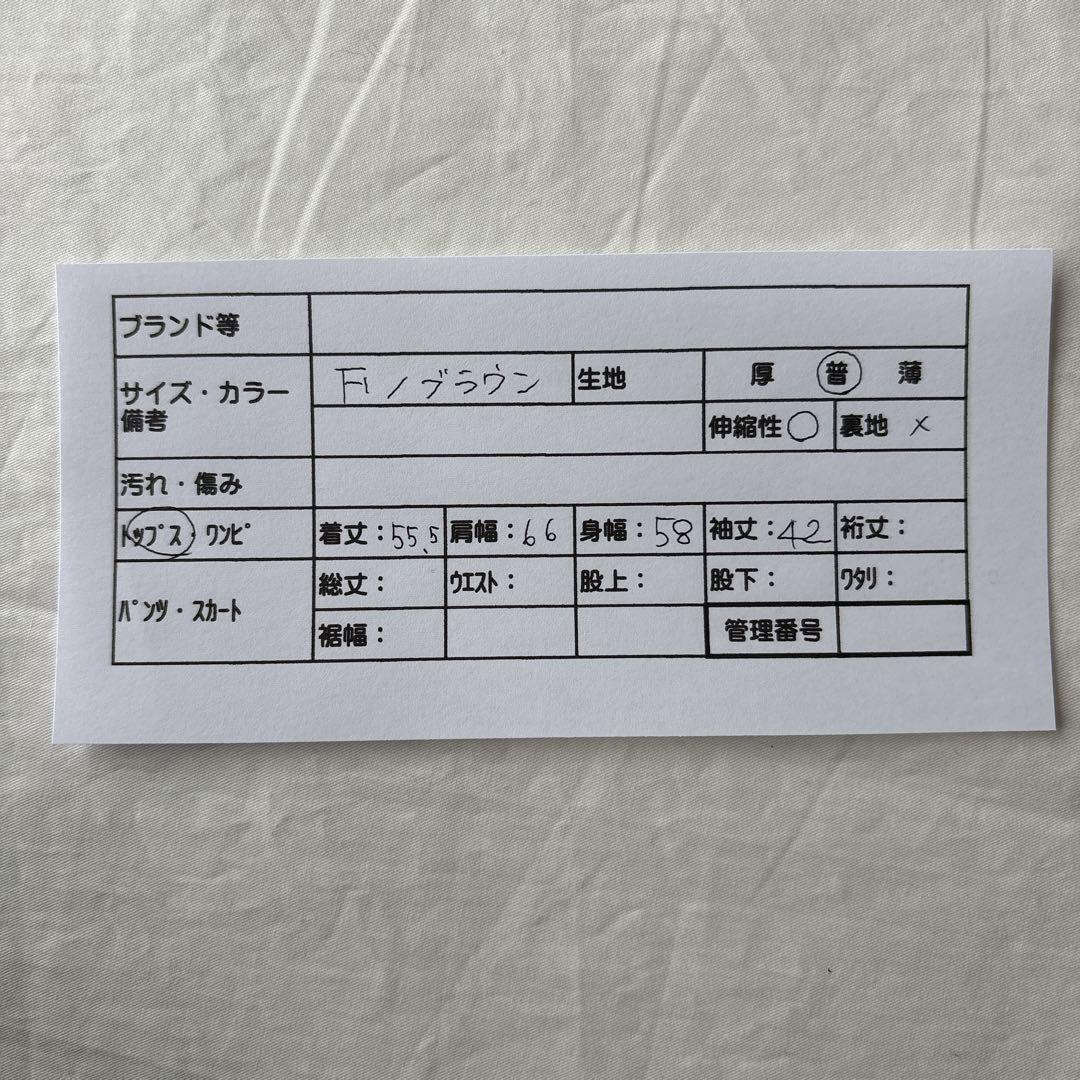 ブランド等
サイズ・カラー F / ブラウン 生地 厚 普 薄
備考 伸縮性 ○ 裏地 ×
汚れ・傷み
トップス・ワンピ 着丈：55.5 肩幅：66 身幅：58 袖丈：42 裄丈：
パンツ・スカート 総丈： ウエスト： 股上： 股下： ワタリ：
裾幅： 管理番号